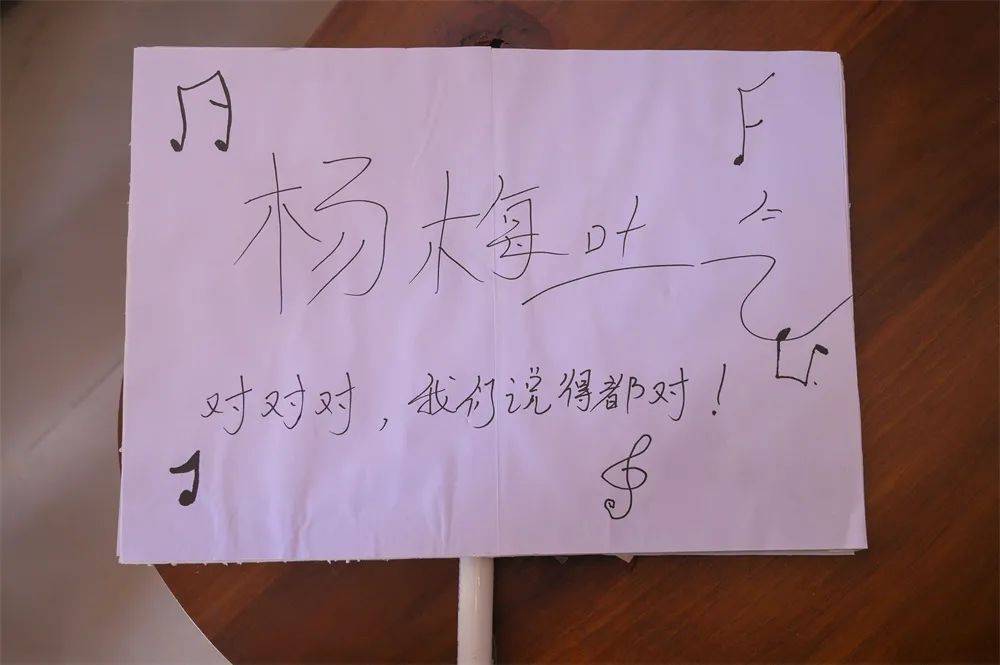 杨梅吐气
对对对，我们说得都对！